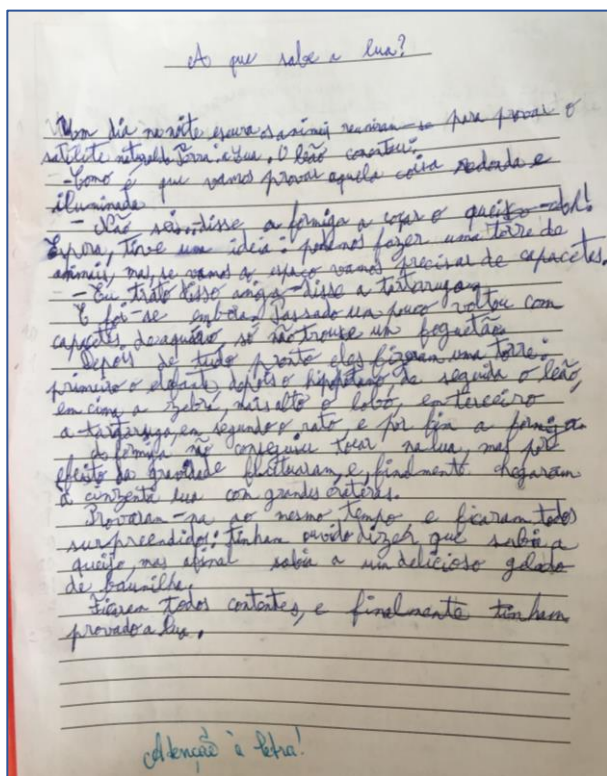 A que sabe a lua?
Um dia na noite escura os animais reuniram-se para provar o
satelite natural da Terra: a Lua. O leão comentou:
-Como é que vamos provar aquela coisa redonda e
iluminada
- Não sei...disse a formiga a coçar o queixo -Ah!
Espera, tive um ideia: podemos fazer uma torre de
animais, mas, se vamos a espaço vamos precisar de capacetes.
- Eu trato disso amiga-disse a tartaruga.
E foi-se embora. Passado um pouco voltou com
capacetes de aquário, só não trouxe um foguetão.
Depois de tudo pronto eles fizeram uma torre:
primeiro o elefante, depois o hipópotamo, de seguida o leão,
em cima a zebra, mais alto o lobo, em terceiro
a tartaruga, em segundo o rato e por fim a formiga.
A formiga não conseguiu tocar na lua, mas por
efeito da gravidade flutuaram, e, finalmente chegaram
à cinzenta lua com grandes crateras.
Provaram-na ao mesmo tempo e ficaram todos
surpreendidos: tinham ouvido dizer que sabia a
queijo, mas afinal sabia a um delicioso gelado
de baunilha.
Ficaram todos contentes, e finalmente tinham
provado a lua.
Atenção à letra!